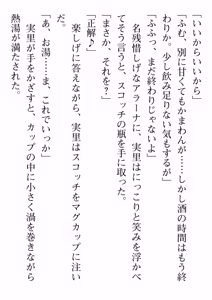 「いいからいいから」
「ふむ、別に甘くてもかまわんが……しかし酒の時間はもう終
わりか。少し飲み足りない気もするが」
「ふふっ、まだ終わりじゃないよ」
名残惜しげなアラーナに、実里はにっこりと笑みを浮かべ
てそう言うと、スコッチの瓶を手に取った。
「まさか、それを？」
「正解♪」
楽しげに答えながら、実里はスコッチをマグカップに注い
だ。
「あ、お湯……ま、これでいっか」
実里が手をかざすと、カップの中に小さく渦を巻きながら
熱湯が満たされた。